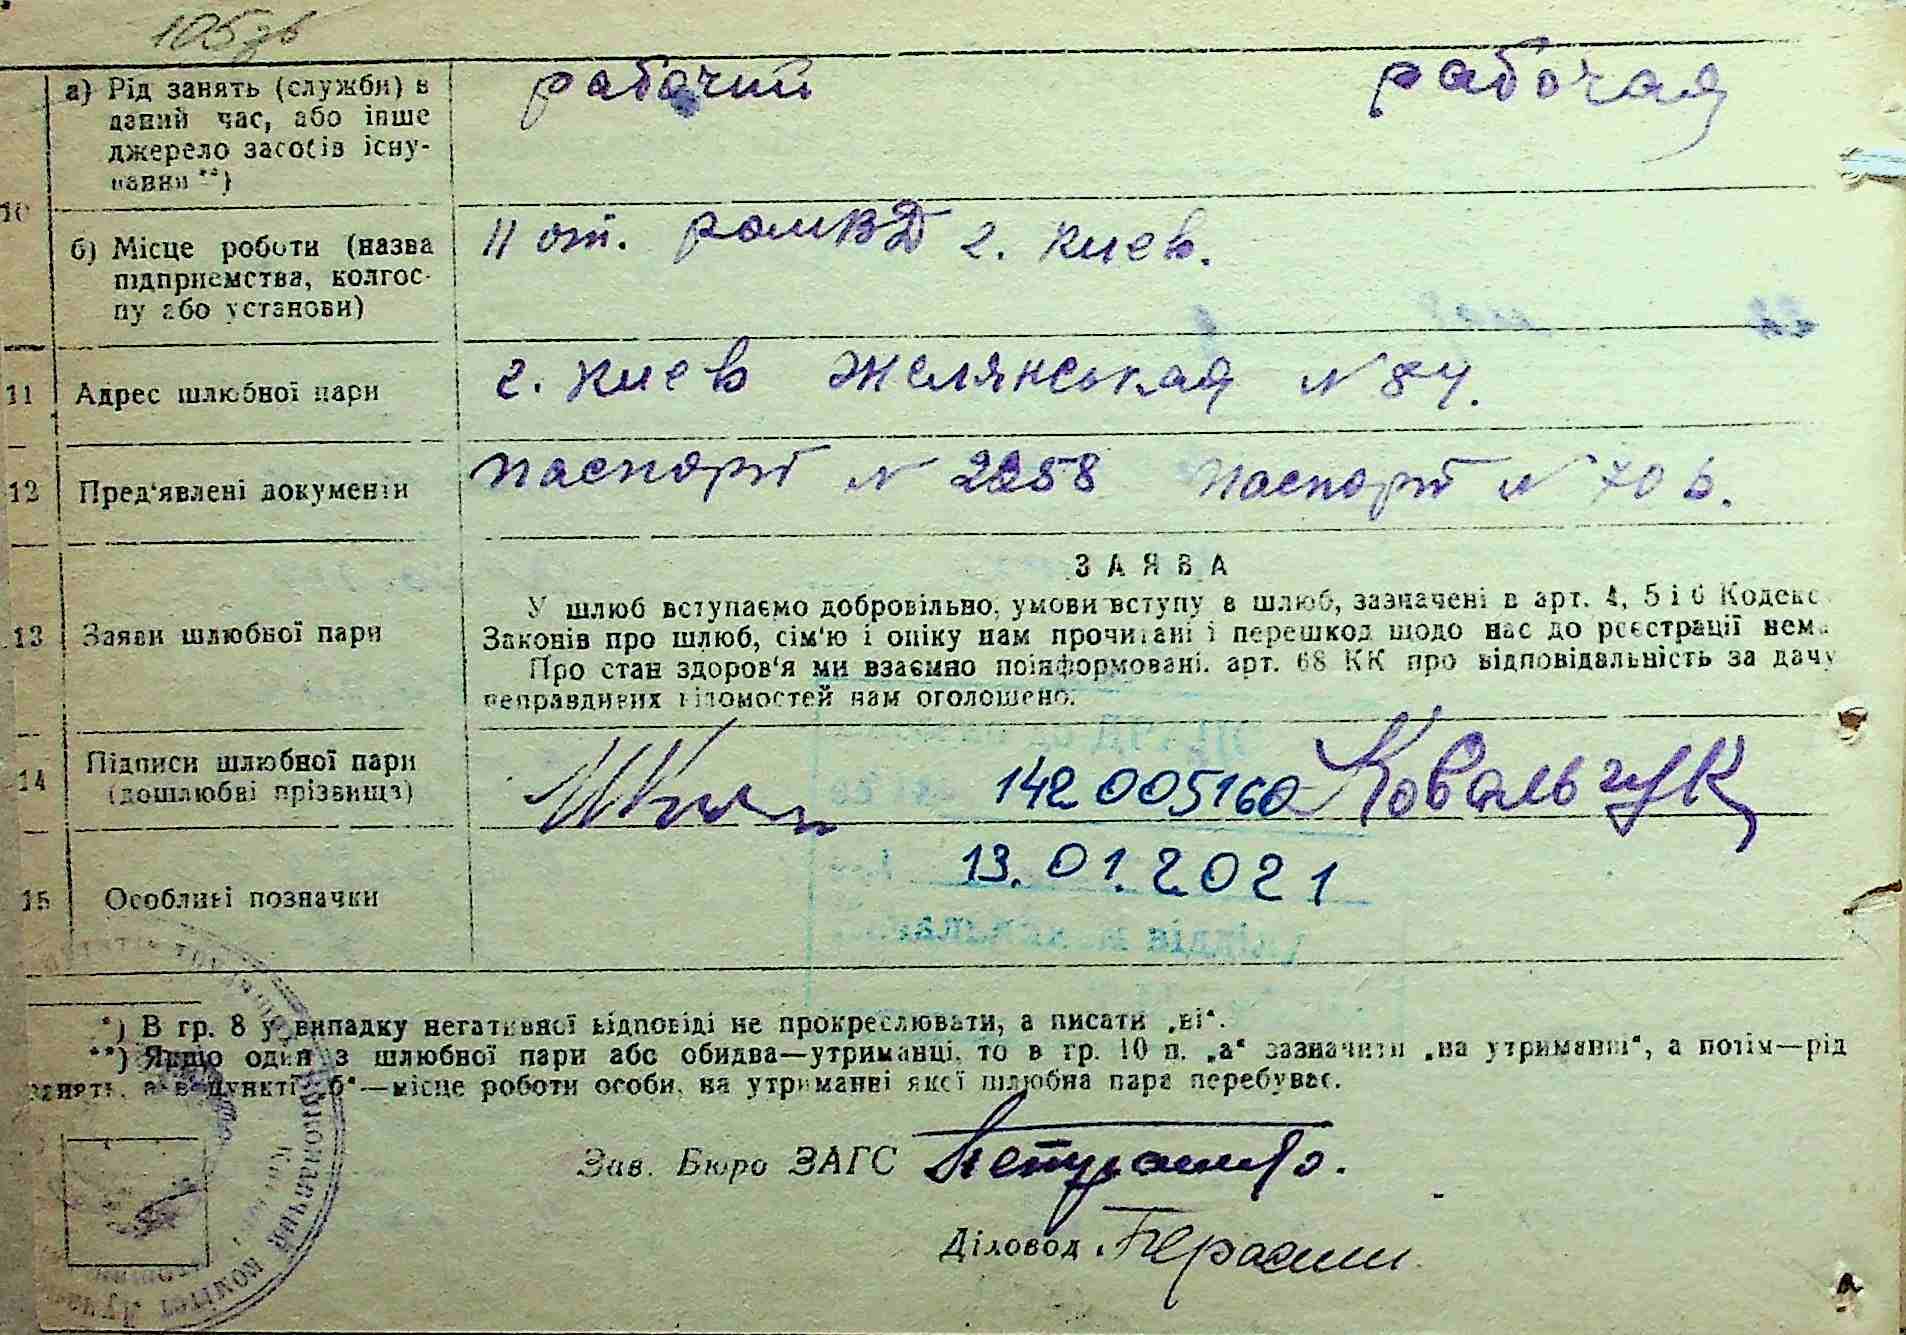 105зв
10
а) Рід занять (служби) в
даний час, або інше
джерело засобів існу-
вання **)
рабочий
рабочая
б) Місце роботи (назва
підприємства, колгос-
пу або установи)
11 от. РОМВД г. Киев.
11
Адрес шлюбної пари
г. Киев Желянськая N 84.
12
Пред'явлені документи
паспорт N 2258 паспорт N 706.
13
Заяви шлюбної пари
ЗАЯВА
У шлюб вступаємо добровільно, умови вступу в шлюб, зазначені в арт. 4, 5 і 6 Кодекс
Законів про шлюб, сім'ю і опіку нам прочитані і перешкод щодо нас до реєстрації нема
Про стан здоров'я ми взаємно поінформовані. арт. 68 КК про відповідальність за дачу
неправдивих відомостей нам оголошено.
14
Підписи шлюбної пари
(дошлюбні прізвища)
142005160 Ковальчук
13.01.2021
15
Особливі позначки
*) В гр. 8 у випадку негативної відповіді не прокреслювати, а писати „ні“.
**) Якщо один з шлюбної пари або обидва—утриманці, то в гр. 10 п. „а“ зазначити „на утриманні“, а потім—рід
занять, а в пункті „б“—місце роботи особи, на утриманні якої шлюбна пара перебуває.
Зав. Бюро ЗАГС
Діловод
виконавчий комітет